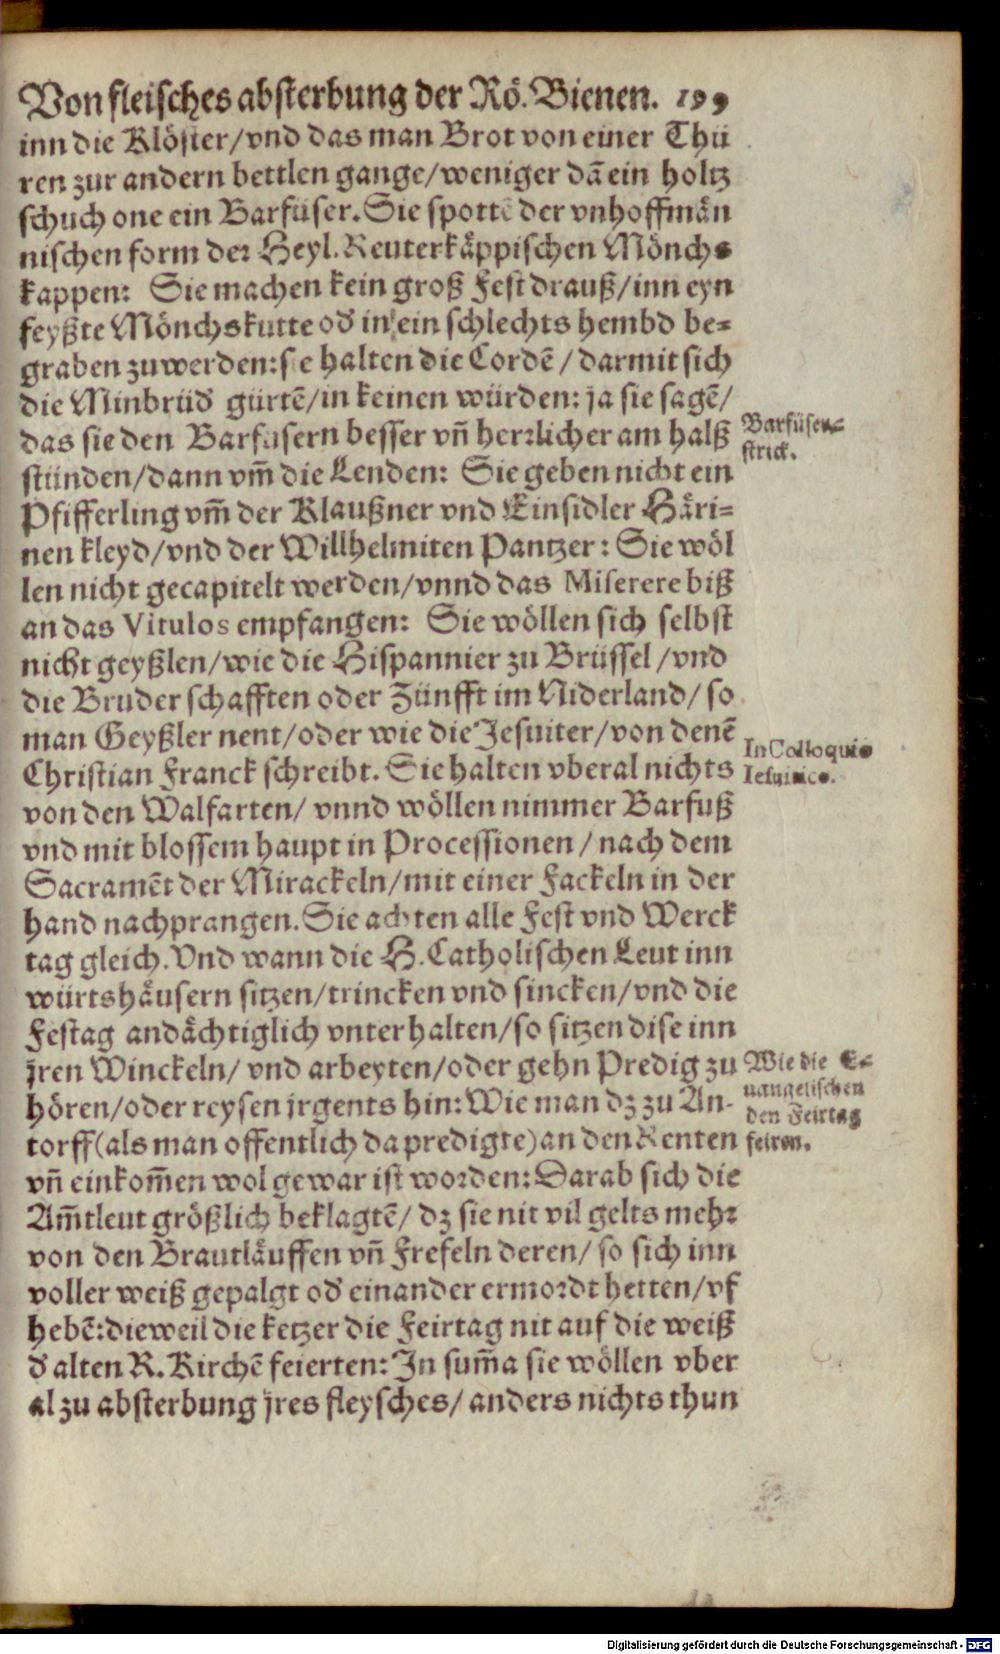 Von fleisches absterbung der Rö. Bienen. 199
inn die Klöster/vnd das man Brot von einer Thü
ren zur andern bettlen gange/weniger dã ein holtz
schuch one ein Barfüser. Sie spottẽ der vnhoffmän
nischen form der Heyl. Reuterkäppischen Mönchs
kappen: Sie machen kein groß Fest drauß/inn eyn
feyßte Mönchskutte od in ein schlechts hembd be=
graben zuwerden: sie halten die Cordẽ/darmit sich
die Minbrüd gürtẽ/in keinen würden: ja sie sagẽ/
das sie den Barfüsern besser vñ herrlicher am halß
stünden/dann vm̃ die Lenden: Sie geben nicht ein
Barfüser=
strick.
Pfifferling vm̃ der Klaußner vnd Einsidler Häri=
nen kleyd/vnd der Willhelmiten Pantzer: Sie wöl
len nicht gecapitelt werden/vnnd das Miserere biß
an das Vitulos empfangen: Sie wöllen sich selbst
nicht geyßlen/wie die Hispannier zu Brüssel/vnd
die Bruderschafften oder Zünfft im Niderland/so
man Geyßler nent/oder wie die Jesuiter/von denẽ
Christian Franck schreibt. Sie halten vberal nichts
In Colloquio
Iesuitico.
von den Walfarten/ vnnd wöllen nimmer Barfuß
vnd mit blossem haupt in Processionen/nach dem
Sacramẽt der Mirackeln/mit einer Fackeln in der
hand nachprangen. Sie achten alle Fest vnd Werck
tag gleich. Vnd wann die H. Catholischen Leut inn
würtshäusern sitzen/trincken vnd sincken/vnd die
Festag andächtiglich vnterhalten/so sitzen dise inn
jren Winckeln/ vnd arbeyten/oder gehn Predig zu
hören/oder reysen jrgents hin: Wie man dz zu An-
torff (als man offentlich da predigte) an den Renten
Wie die E=
uangelischen
den Feirtag
feiren.
vñ einkom̃en wol gewar ist worden: Darab sich die
Am̃tleut größlich beklagtẽ/ dz sie nit vil gelts mehr
von den Brautläuffen vñ Frefeln deren/ so sich inn
voller weiß gepalgt od einander ermordt hetten/vf
hebẽ: dieweil die ketzer die Feirtag nit auf die weiß
d alten R. Kirchẽ feierten: In sum̃a sie wöllen vber
al zu absterbung jres fleysches/ anders nichts thun
Digitalisierung gefördert durch die Deutsche Forschungsgemeinschaft - DFG